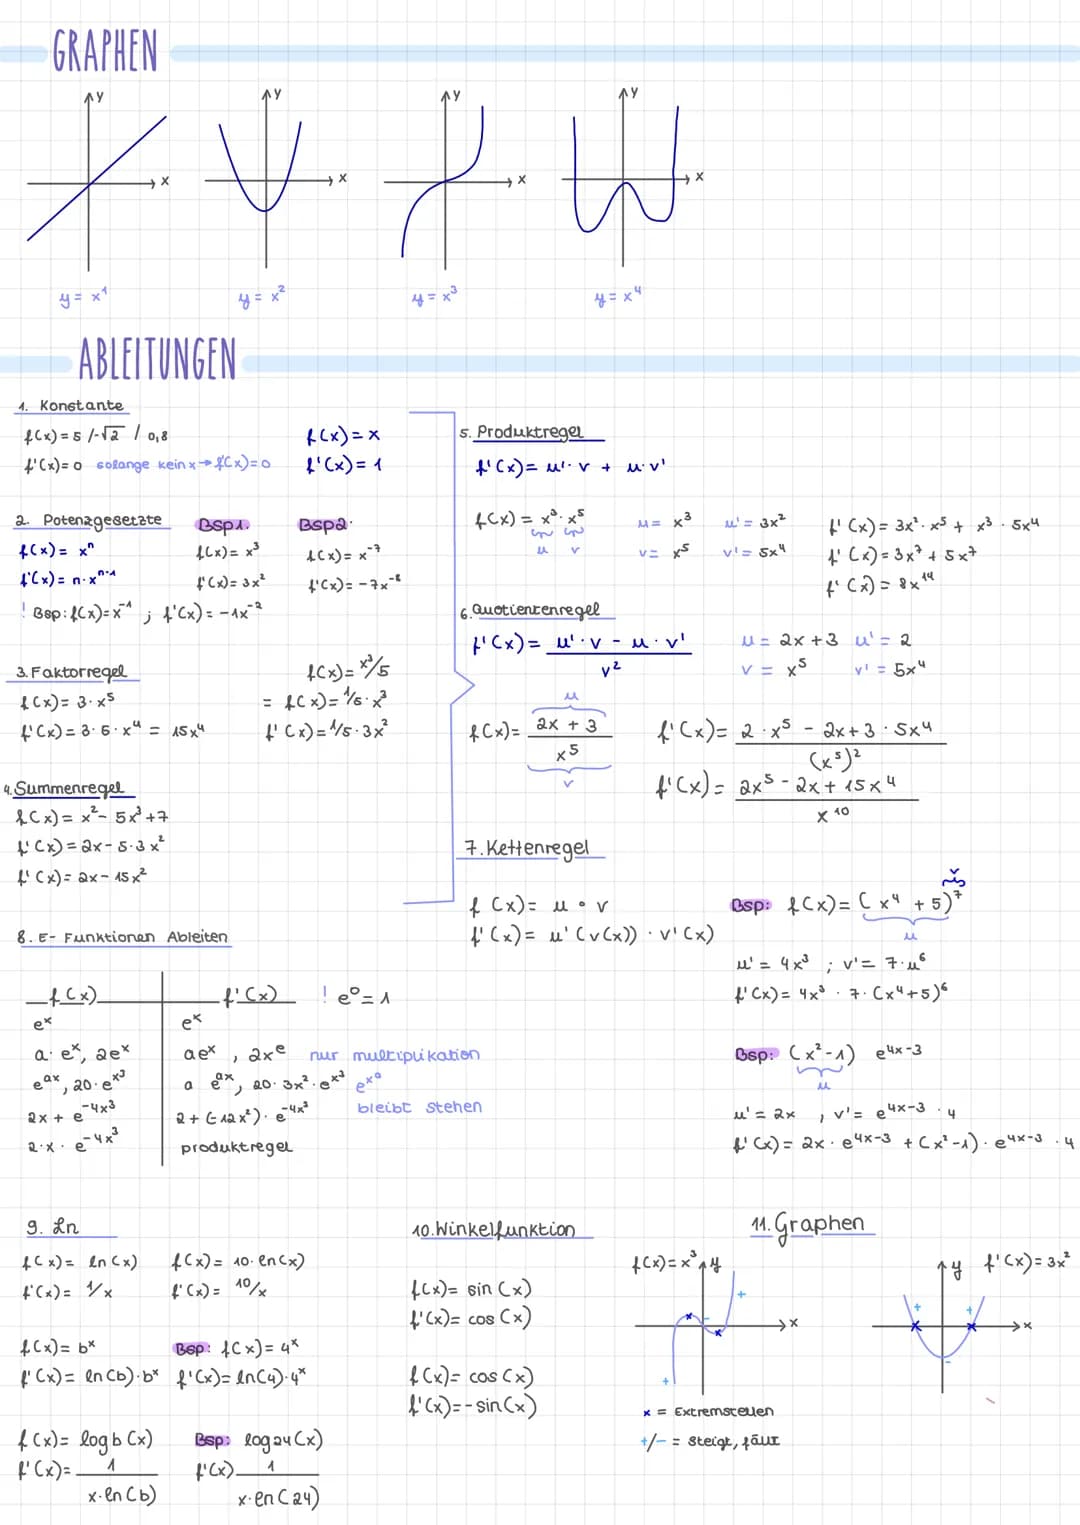 GRAPHEN
y
x
y
x
y
x
y
x
y = x¹
y = x²
y = x³
y = x⁴
ABLEITUNGEN
1. Konstante
f(x) = 5 /-√2 / 0,8
f'(x) = 0 solange kein x → f'(x) = 0
f(x) = x
f'(x) = 1
2. Potenzgesetzte
f(x) = xⁿ
f'(x) = n·xⁿ⁻¹
Bsp1.
f(x) = x³
f'(x) = 3x²
Bsp2.
f(x) = x⁻⁷
f'(x) = -7x⁻⁸
! Bsp: f(x) = x⁻¹ ; f'(x) = -1x⁻²
3. Faktorregel
f(x) = 3·x⁵
f'(x) = 3·5·x⁴ = 15x⁴
f(x) = x³/5
= f(x) = 1/5·x³
f'(x) = 1/5·3x²
4. Summenregel
f(x) = x² - 5x³ + 7
f'(x) = 2x - 5·3x²
f'(x) = 2x - 15x²
5. Produktregel
f'(x) = u'·v + u·v'
f(x) = x³·x⁵
u v
u = x³ u' = 3x²
v = x⁵ v' = 5x⁴
f'(x) = 3x²·x⁵ + x³·5x⁴
f'(x) = 3x⁷ + 5x⁷
f'(x) = 8x¹⁴
6. Quotientenregel
f'(x) = u'·v - u·v'
v²
u = 2x + 3 u' = 2
v = x⁵ v' = 5x⁴
u
f(x) = 2x + 3
x⁵
v
f'(x) = 2·x⁵ - 2x + 3·5x⁴
(x⁵)²
f'(x) = 2x⁵ - 2x + 15x⁴
x¹⁰
7. Kettenregel
f(x) = u ∘ v
f'(x) = u'(v(x))·v'(x)
v
Bsp: f(x) = (x⁴ + 5)⁷
u
u' = 4x³ ; v' = 7·u⁶
f'(x) = 4x³·7·(x⁴+5)⁶
Bsp: (x²-1) e⁴ˣ⁻³
u
u' = 2x , v' = e⁴ˣ⁻³·4
f'(x) = 2x·e⁴ˣ⁻³ + (x²-1)·e⁴ˣ⁻³·4
8. E- Funktionen Ableiten
f(x) f'(x) ! e⁰ = 1
eˣ eˣ
a·eˣ, 2eˣ aeˣ , 2xᵉ nur multiplikation
eᵃˣ, 20·e^x³ a eᵃˣ, 20·3x²·e^x³ e^xᵃ
2x + e^-4x³ 2 + (-12x²)·e^-4x³ bleibt stehen
2·x·e^-4x³ produktregel
9. Ln
f(x) = ln(x)
f'(x) = 1/x
f(x) = 10·ln(x)
f'(x) = 10/x
f(x) = bˣ
f'(x) = ln(b)·bˣ
Bsp: f(x) = 4ˣ
f'(x) = ln(4)·4ˣ
f(x) = log b (x)
f'(x) = 1
x·ln(b)
Bsp: log 24 (x)
f'(x) 1
x·ln(24)
10. Winkelfunktion
f(x) = sin(x)
f'(x) = cos(x)
f(x) = cos(x)
f'(x) = -sin(x)
11. Graphen
f(x) = x³
y
+
-
x
+
x = Extremstellen
+/- = steigt, fällt
y
f'(x) = 3x²
+
+
x
-